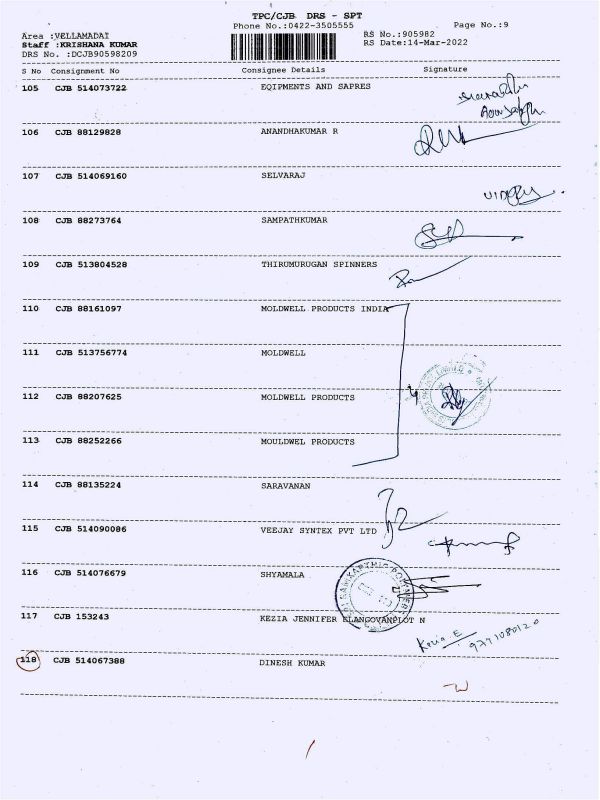 TPC/CJB DRS - SPT
Phone No.:0422-3505555
Page No.:9
Area :VELLAMADAI
RS No.:905982
Staff :KRISHANA KUMAR
RS Date:14-Mar-2022
DRS No. :DCJB90598209
S No Consignment No Consignee Details Signature
105 CJB 514073722 EQIPMENTS AND SAPRES
106 CJB 88129828 ANANDHAKUMAR R
107 CJB 514069160 SELVARAJ
108 CJB 88273764 SAMPATHKUMAR
109 CJB 513804528 THIRUMURUGAN SPINNERS
110 CJB 88161097 MOLDWELL PRODUCTS INDIA
111 CJB 513756774 MOLDWELL
112 CJB 88207625 MOLDWELL PRODUCTS
113 CJB 88252266 MOULDWEL PRODUCTS
114 CJB 88135224 SARAVANAN
115 CJB 514090086 VEEJAY SYNTEX PVT LTD
116 CJB 514076679 SHYAMALA
117 CJB 153243 KEZIA JENNIFER ELANGOVANPLOT N
118 CJB 514067388 DINESH KUMAR